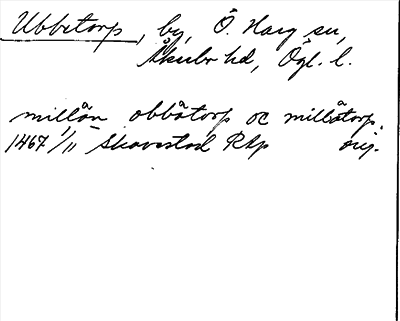 Ubbetorp, by, Ö. Harg sn,
Åkerbo hd, Ögl. l.
millån obbåtorp oc millåtorp.
1467 1/11 Skavestad RAp orig.